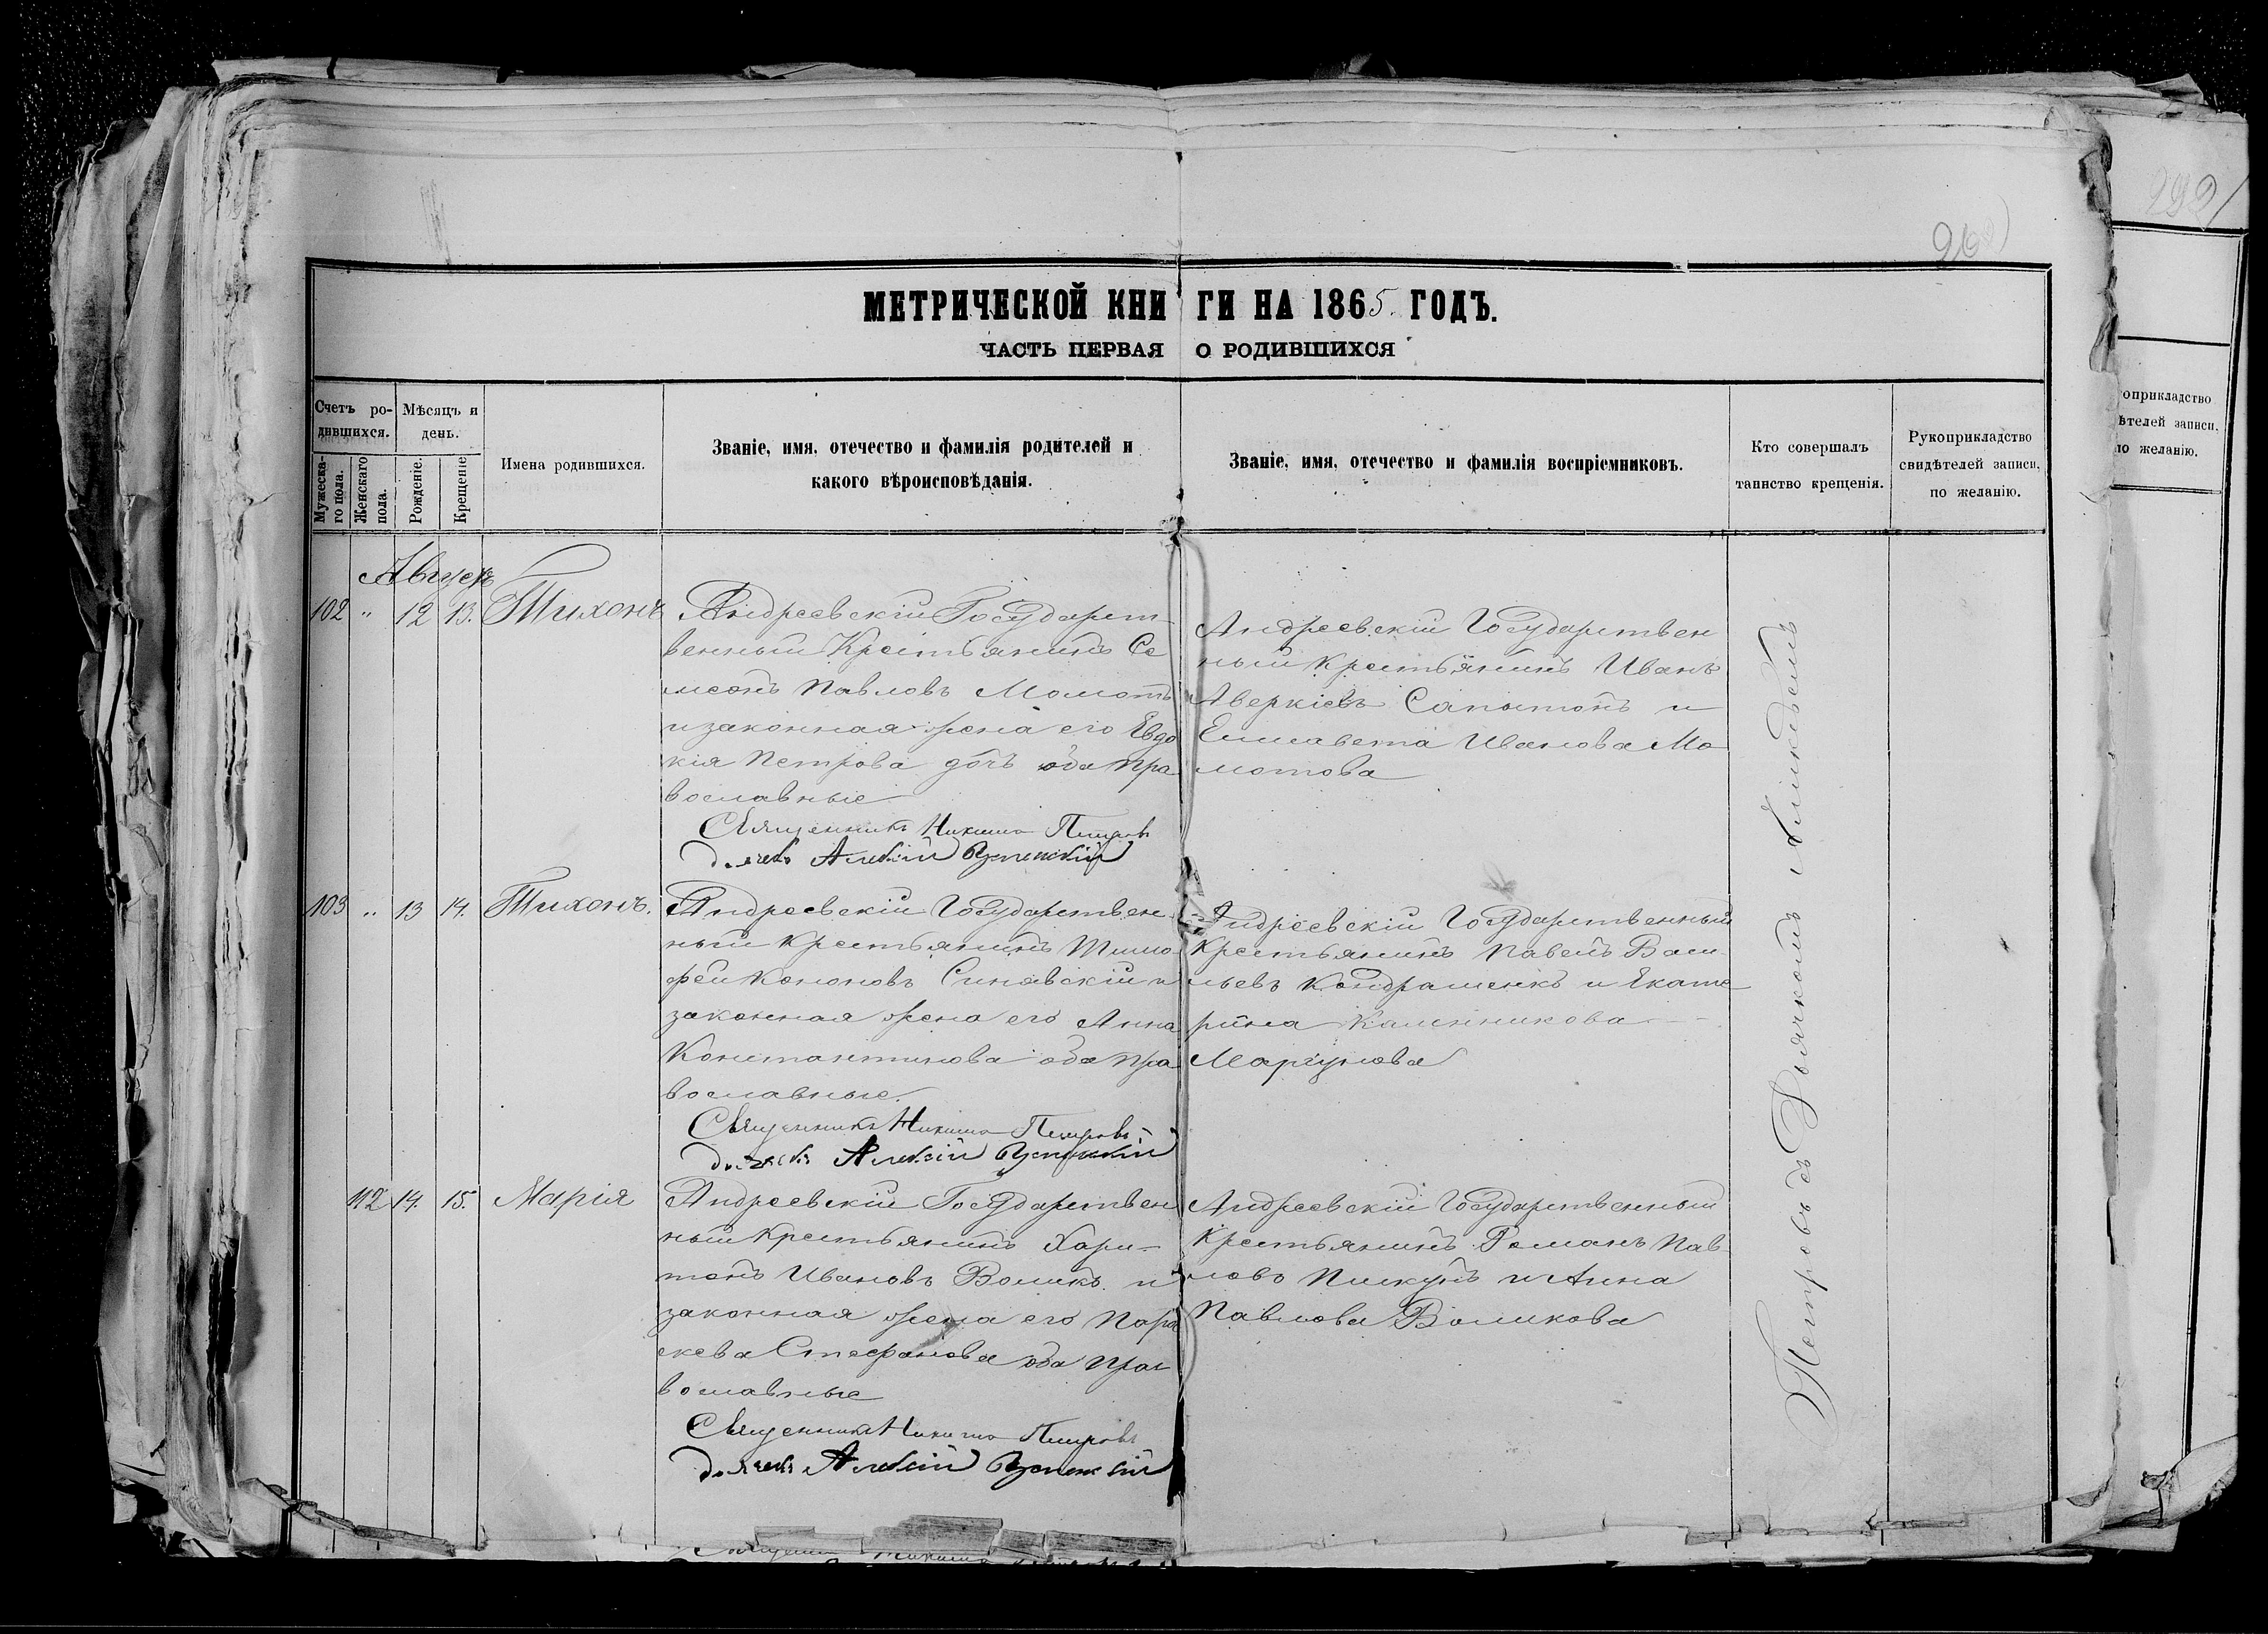 292
96
МЕТРИЧЕСКОЙ КНИГИ НА 1865. ГОДЪ.
ЧАСТЬ ПЕРВАЯ О РОДИВШИХСЯ
Счетъ ро-
дившихся.
Мужеска-
го пола.
Женскаго
пола.
Мѣсяцъ и
день.
Рожденіе.
Крещеніе
Имена родившихся.
Званіе, имя, отечество и фамилія родителей и
какого вѣроисповѣданія.
Званіе, имя, отечество и фамилія воспріемниковъ.
Кто совершалъ
таинство крещенія.
Рукоприкладство
свидѣтелей записи,
по желанію.
оприкладство
ѣтелей записи,
по желанію.
Августъ
102 " 12 13. Тихонъ
Андреевскій Государст
венный Крестьянинъ Се
меонъ Павловъ Момотъ
и законная жена его Евдо
кія Петрова дочь оба пра
вославные
Священникъ Никита Петровъ
дьячекъ Алексій Успенскій
Андреевскій Государствен
ный крестьянинъ Иванъ
Аверкіевъ Сапытонъ и
Елисавета Иванова Мо
мотова
103 " 13 14. Тихонъ.
Андреевскій Государствен
ный крестьянинъ Тимо
фей Кононовъ Синявскій и
законная жена его Анна
Константинова оба пра
вославные.
Священникъ Никита Петровъ
дьячекъ Алексій Успенскій
Андреевскій Государственный
Крестьянинъ Павелъ Васи
льевъ Кондрашенкъ и Екате
рина Калинникова
Маргунова
112 14. 15. Марія
Андреевскій Государствен
ный Крестьянинъ Хари-
тонъ Ивановъ Воликъ и
законная жена его Пара
скева Стефанова оба пра
вославные
Священникъ Никита Петровъ
дьячекъ Алексій Успенскій
Андреевскій Государственный
Крестьянинъ Романъ Пав
ловъ Пикунъ и Анна
Павлова Воликова
Петровъ съ Дьячкомъ